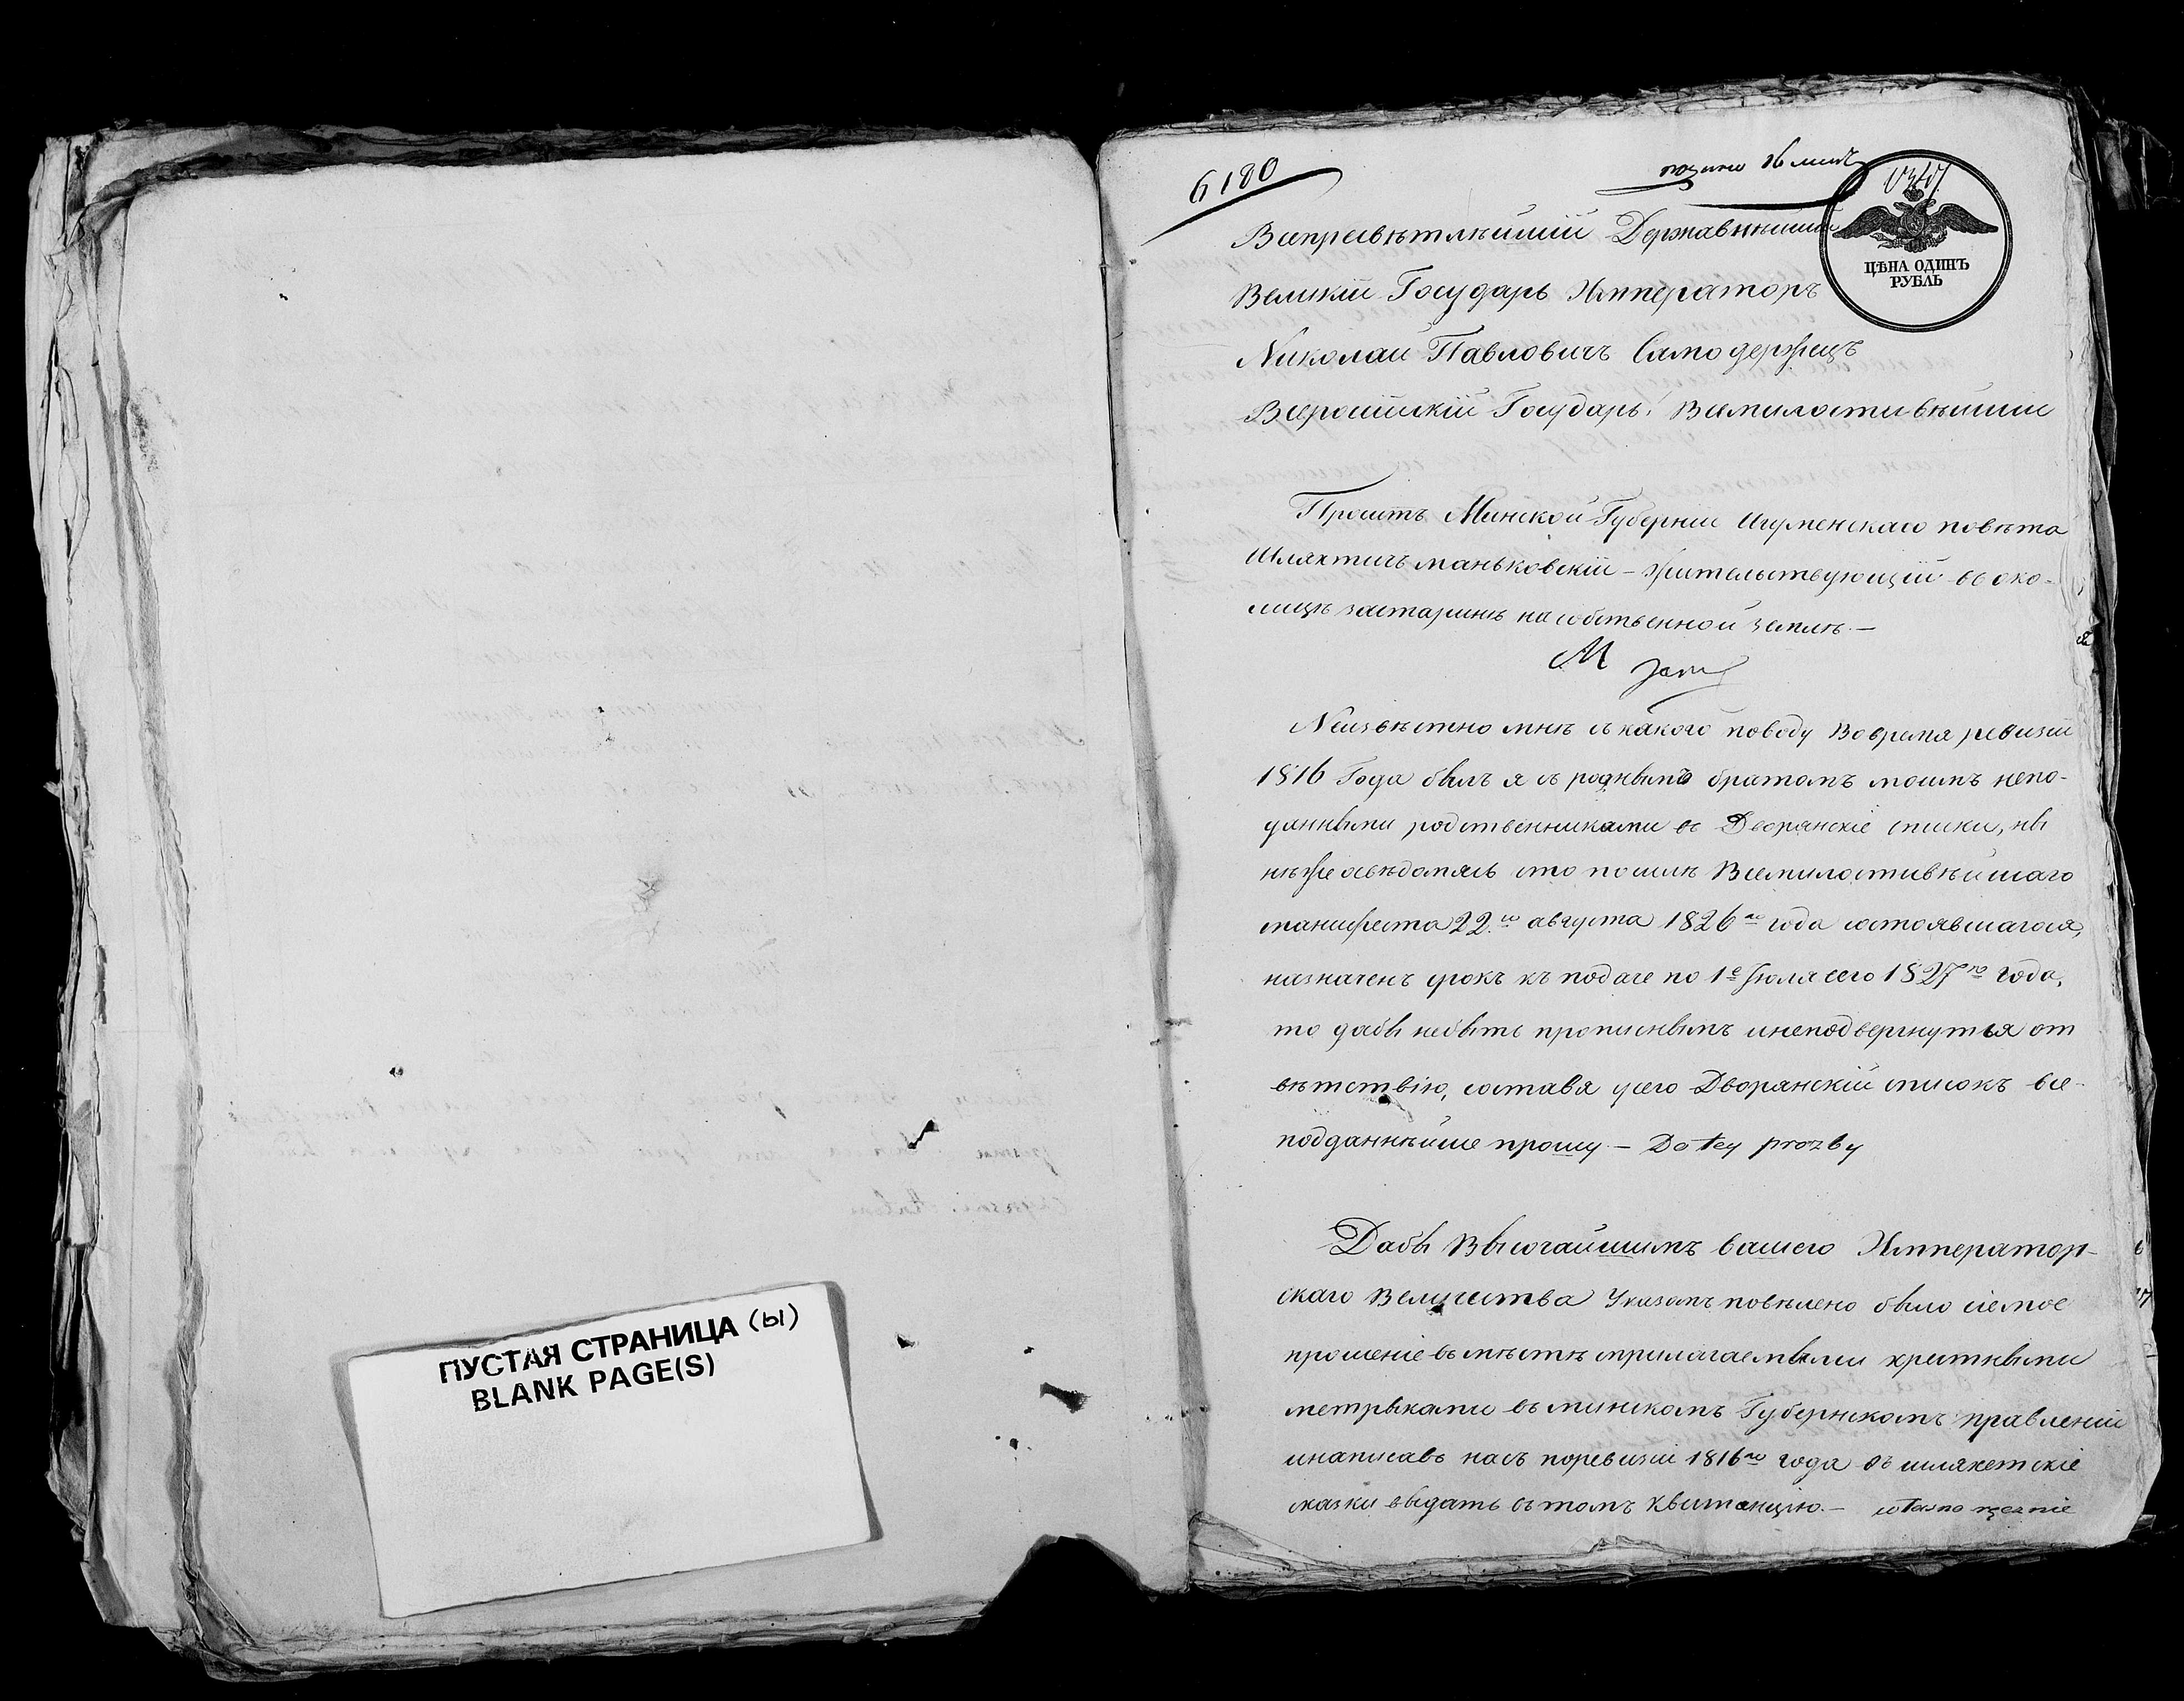 ПУСТАЯ СТРАНИЦА (ы)
BLANK PAGE(S)
6180
ЦѢНА ОДИНЪ
РУБЛЬ
Всепресвѣтлѣйшій Державнѣйшій
Великій Государь Императоръ
Николай Павловичъ Самодержецъ
Всероссійскій Государь! Всемилостивѣйшій
Проситъ Минской Губерніи Игуменскаго повѣта
Шляхтичъ Маньковскій – жительствующій въ око-
лицѣ застаринѣ на собственной землѣ. –
Неизвѣстно мнѣ съ какого поводу во время ревизіи
1816 Года былъ я съ роднымъ братомъ моимъ непо-
данными родственниками въ Дворянскіе списки, ны
нѣ же освѣдомясь что по силѣ Всемилостивѣйшаго
манифеста 22.го августа 1826го года состоявшагося,
назначенъ срокъ къ подаче по 1е Іюля сего 1827го года,
то дабы небыть прописнымъ инеподвергнутся от
вѣтствію, составя усего Дворянскій списокъ все-
подданнѣйше прошу. – Do tey prozby
Дабы Высочайшимъ вашего Император-
скаго Величества Указомъ повѣлено было сіе мое
прошеніе въмѣстѣ сприлагаемыми крестными
метрыками въ минскомъ Губернскомъ правленіи
инаписавъ насъ поревизіи 1816го года въ шляхетскіе
сказки выдать въ томъ квитанцію. –